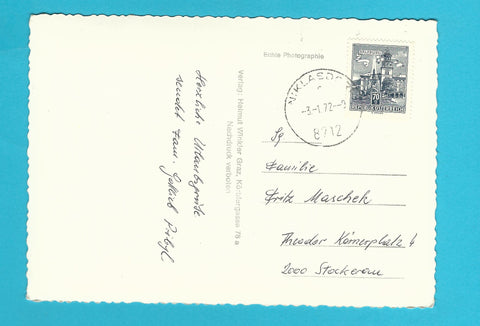 Herzliche Urlaubsgrüße
sendet Fam. Jakob Pribyl
Verlag: Helmut Winkler Graz, Kärntnergasse 76 a
Nachdruck verboten
Echte Photographie
NIKLASDORF
-3.-1.72--9
8712
70
REPUBLIK ÖSTERREICH
Sg
Familie
Fritz Maschek
Theodor Körnerplatz 6
2000 Stockerau